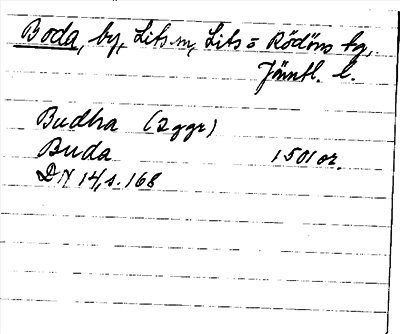 Boda, by, Lits sn, Lits o Rödöns tg,
Jämtl. l.
Budha (2 ggr)
Buda 1501 or.
DN 14, s. 168